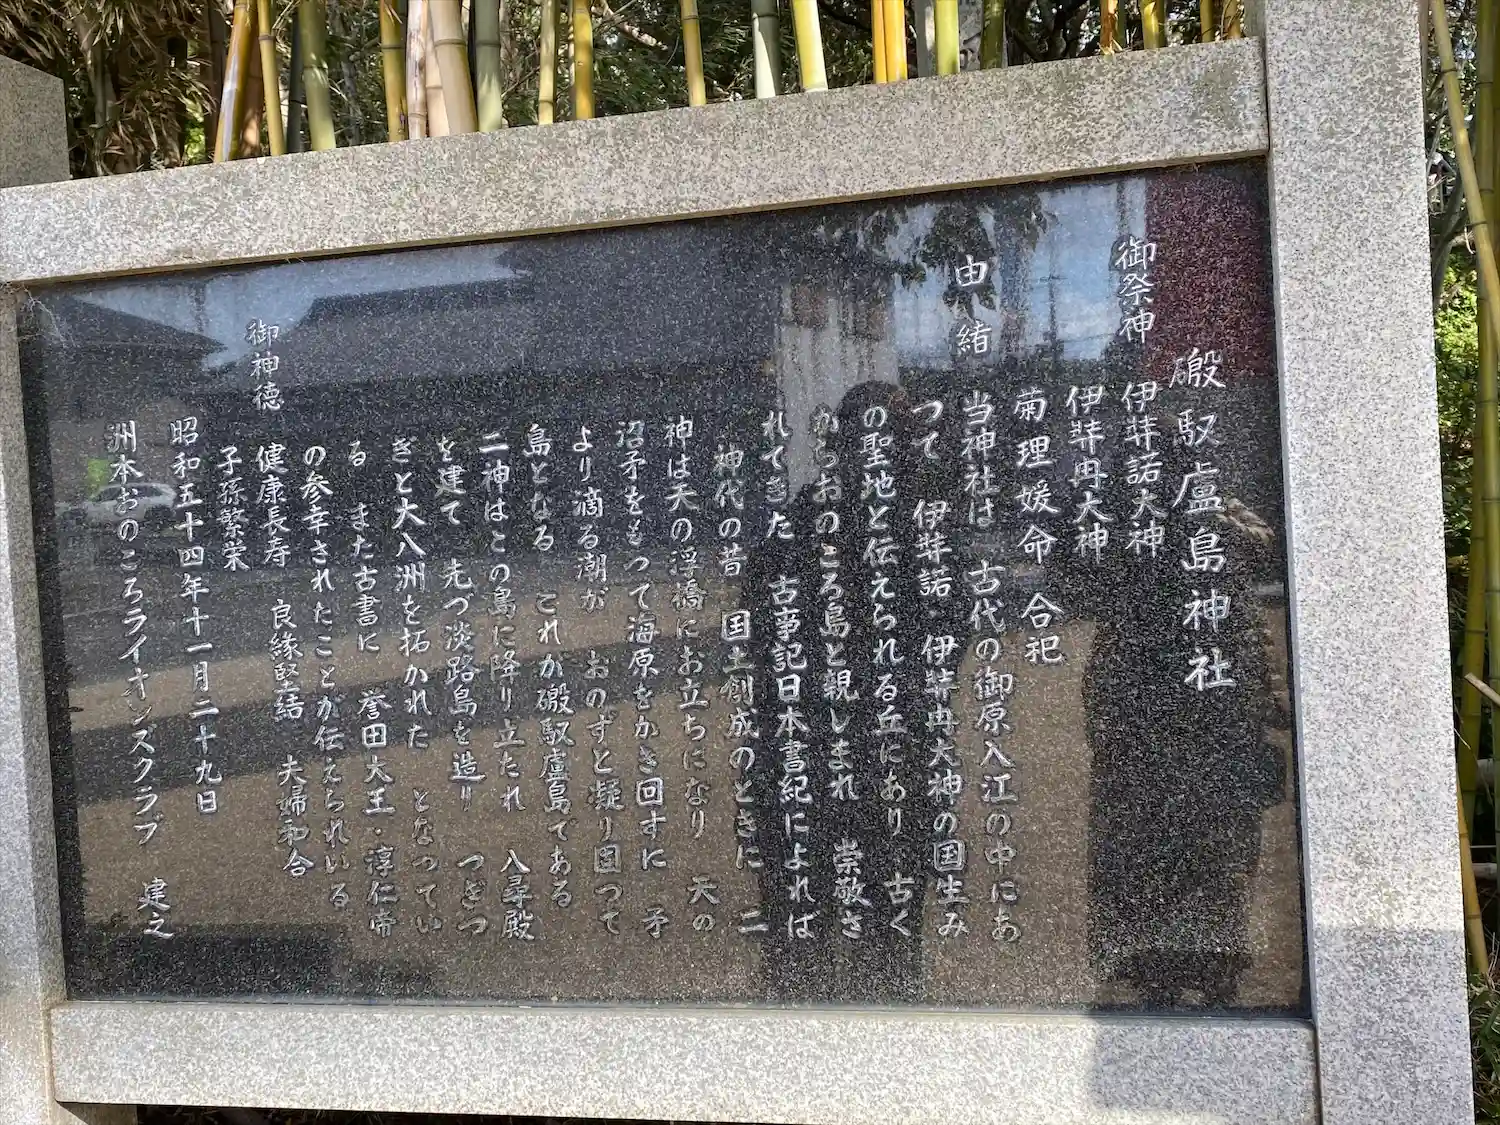 磤馭盧島神社
御祭神
伊弉諾大神
伊弉冉大神
菊理媛命 合祀
由緒
当神社は 古代の御原入江の中にあ
つて 伊弉諾・伊弉冉大神の国生み
の聖地と伝えられる丘にあり 古く
からおのころ島と親しまれ 崇敬さ
れてきた 古事記日本書紀によれば
神代の昔 国土創成のときに 二
神は天の浮橋にお立ちになり 天の
沼矛をもつて海原をかき回すに 矛
より滴る潮が おのずと凝り固つて
島となる これが磤馭盧島である
二神はこの島に降り立たれ 八尋殿
を建て 先づ淡路島を造り つぎつ
ぎと大八洲を拓かれた となつてい
る また古書に 誉田大王・淳仁帝
の参幸されたことが伝えられいる
御神徳
健康長寿 良縁堅結 夫婦和合
子孫繁栄
昭和五十四年十一月二十九日
洲本おのころライオンズクラブ 建之